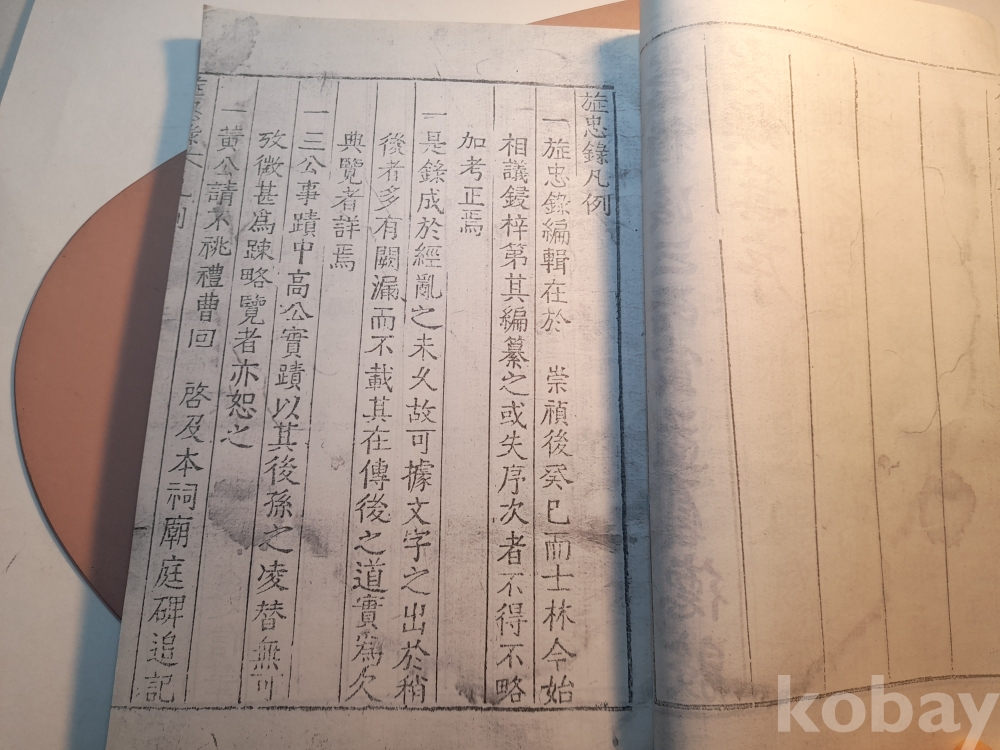 旌忠錄凡例
一旌忠錄編輯在於 崇禎後癸巳而士林今始
相議鋟梓第其編纂之或失序次者不得不略
加考正焉
一是錄成於經亂之未久故可據文字之出於稍
後者多有闕漏而不載其在傳後之道實爲欠
典覽者詳焉
一三公事蹟中高公實蹟以其後孫之凌替無可
攷徵甚爲踈略覽者亦恕之
一黃公請不祧禮曹回 啓及本祠廟庭碑追記
kobay